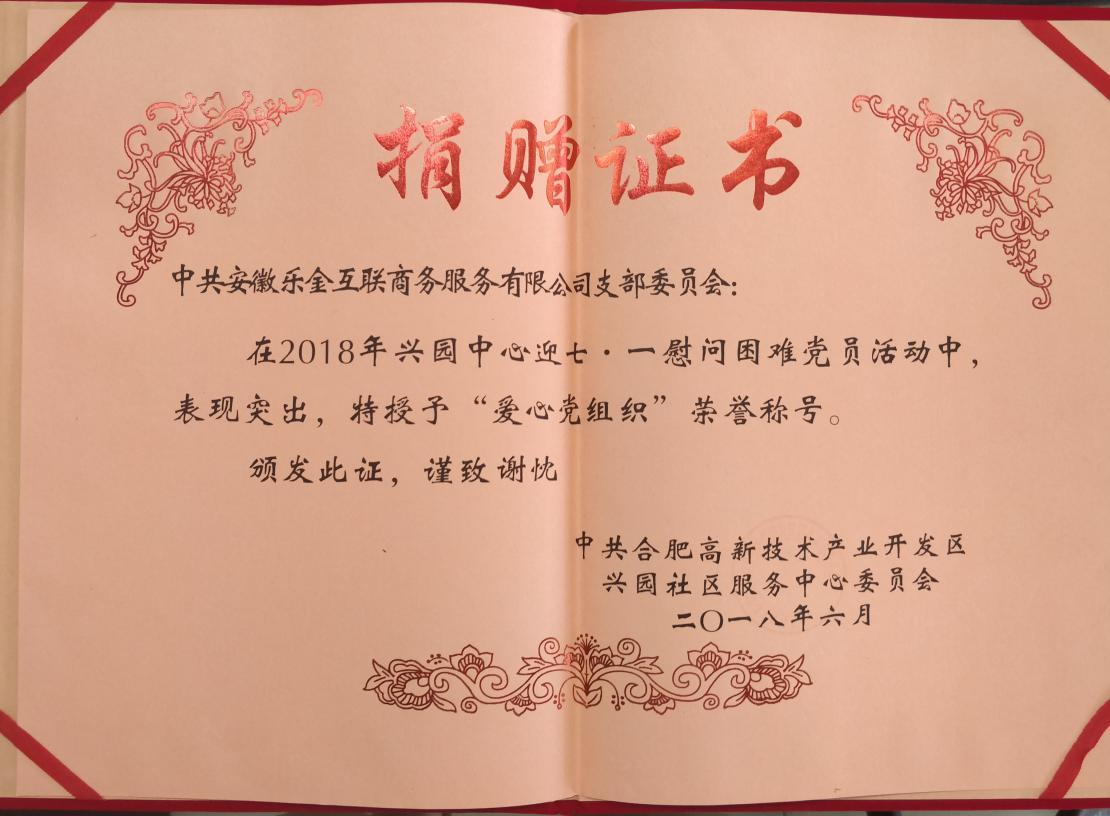 捐赠证书
中共安徽乐金互联商务服务有限公司支部委员会：
在2018年兴园中心迎七·一慰问困难党员活动中，
表现突出，特授予“爱心党组织”荣誉称号。
颁发此证，谨致谢忱
中共合肥高新技术产业开发区
兴园社区服务中心委员会
二〇一八年六月